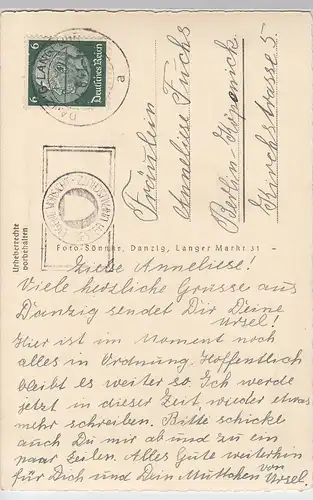 6 6
Deutsches Reich
a
Fräulein
Anneliese Fuchs
Berlin-Köpenick
Kirchstrasse 5
Urheberrechte
vorbehalten
Foto-Sönnke, Danzig, Langer Markt 31
Liebe Anneliese!
Viele herzliche Grüsse aus
Danzig sendet Dir Deine
Ursel!
Hier ist im Moment noch
alles in Ordnung. Hoffentlich
bleibt es weiter so. Ich werde
jetzt in dieser Zeit wieder etwas
mehr schreiben. Bitte schicke
auch Du mir ab und zu ein
paar Zeilen. Alles Gute weiterhin
für Dich und Dein Muttchen von
Ursel.